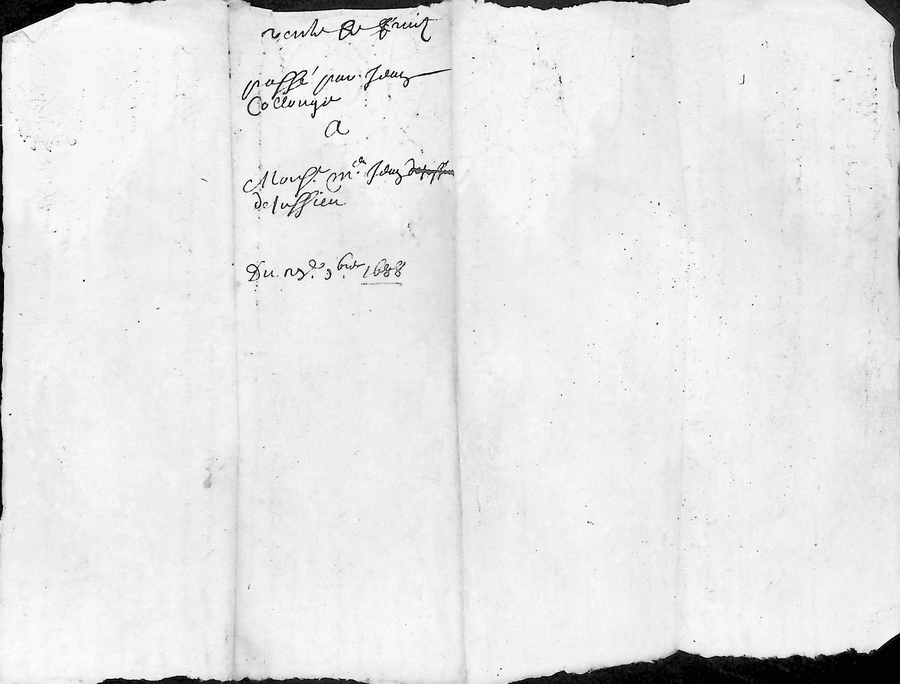 vente de fruit
passé par Jean
Collonge
A
Mons.r M.e Jean
deJussieu
Du 9bre 1688